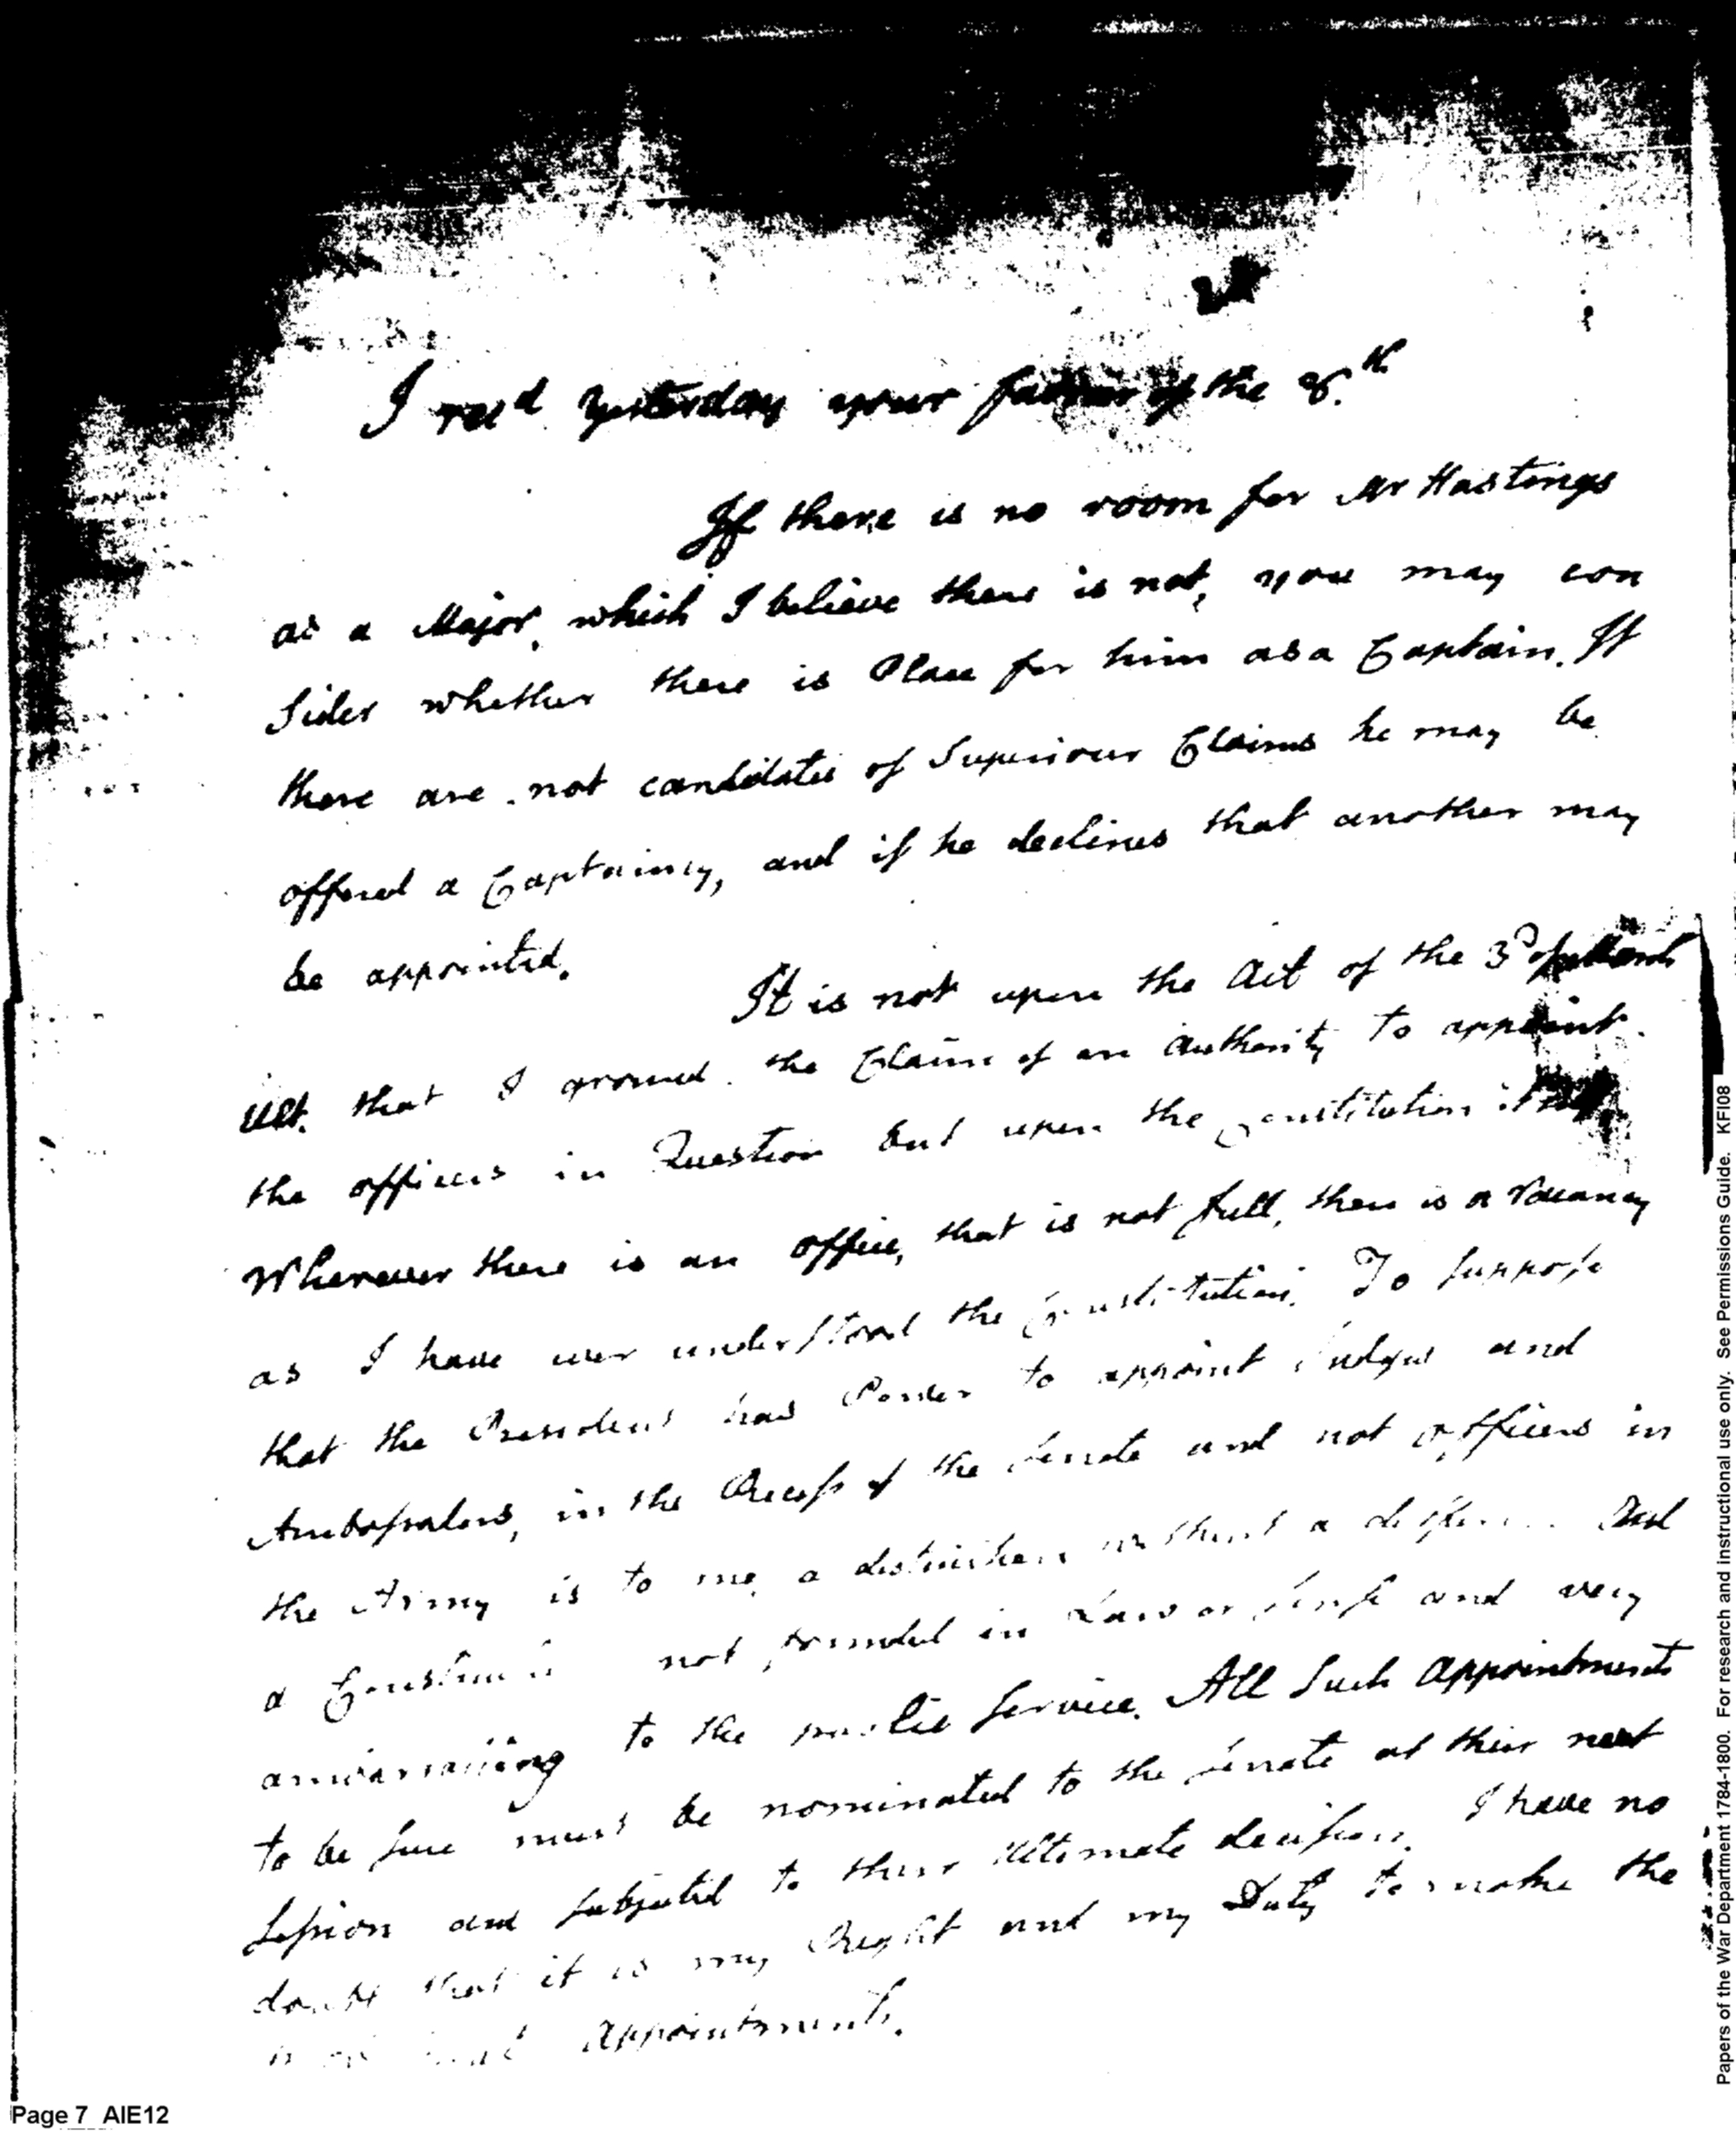 I recd yesterday your favour of the 8.th
If there is no room for Mr Hastings
as a Major, which I believe there is not, you may con
sider whether there is Place for him as a Captain. If
there are not candidates of Superiour Claims he may be
offered a Captaincy, and if he declines that another may
be appointed.
It is not upon the Act of the 3d of March
Ult. that I ground the Claim of an authority to appoint
the officers in Question but upon the Constitution itself.
Wherever there is an office, that is not full, there is a Vacancy
as I have ever understood the Constitution. To suppose
that the President has Power to appoint Judges and
Ambassadors, in the Recess of the Senate and not officers in
the Army is to me, a distinction without a difference And
a Construction not founded in Law or Sense and very
embarrassing to the public Service. All Such Appointments
to be sure must be nominated to the Senate at their next
Session and subjected to their Ultimate decision. I have no
doubt that it is my Right and my Duty to make the
Appointments.
Page 7 AIE12
Papers of the War Department 1784-1800. For research and instructional use only. See Permissions Guide. KFI08